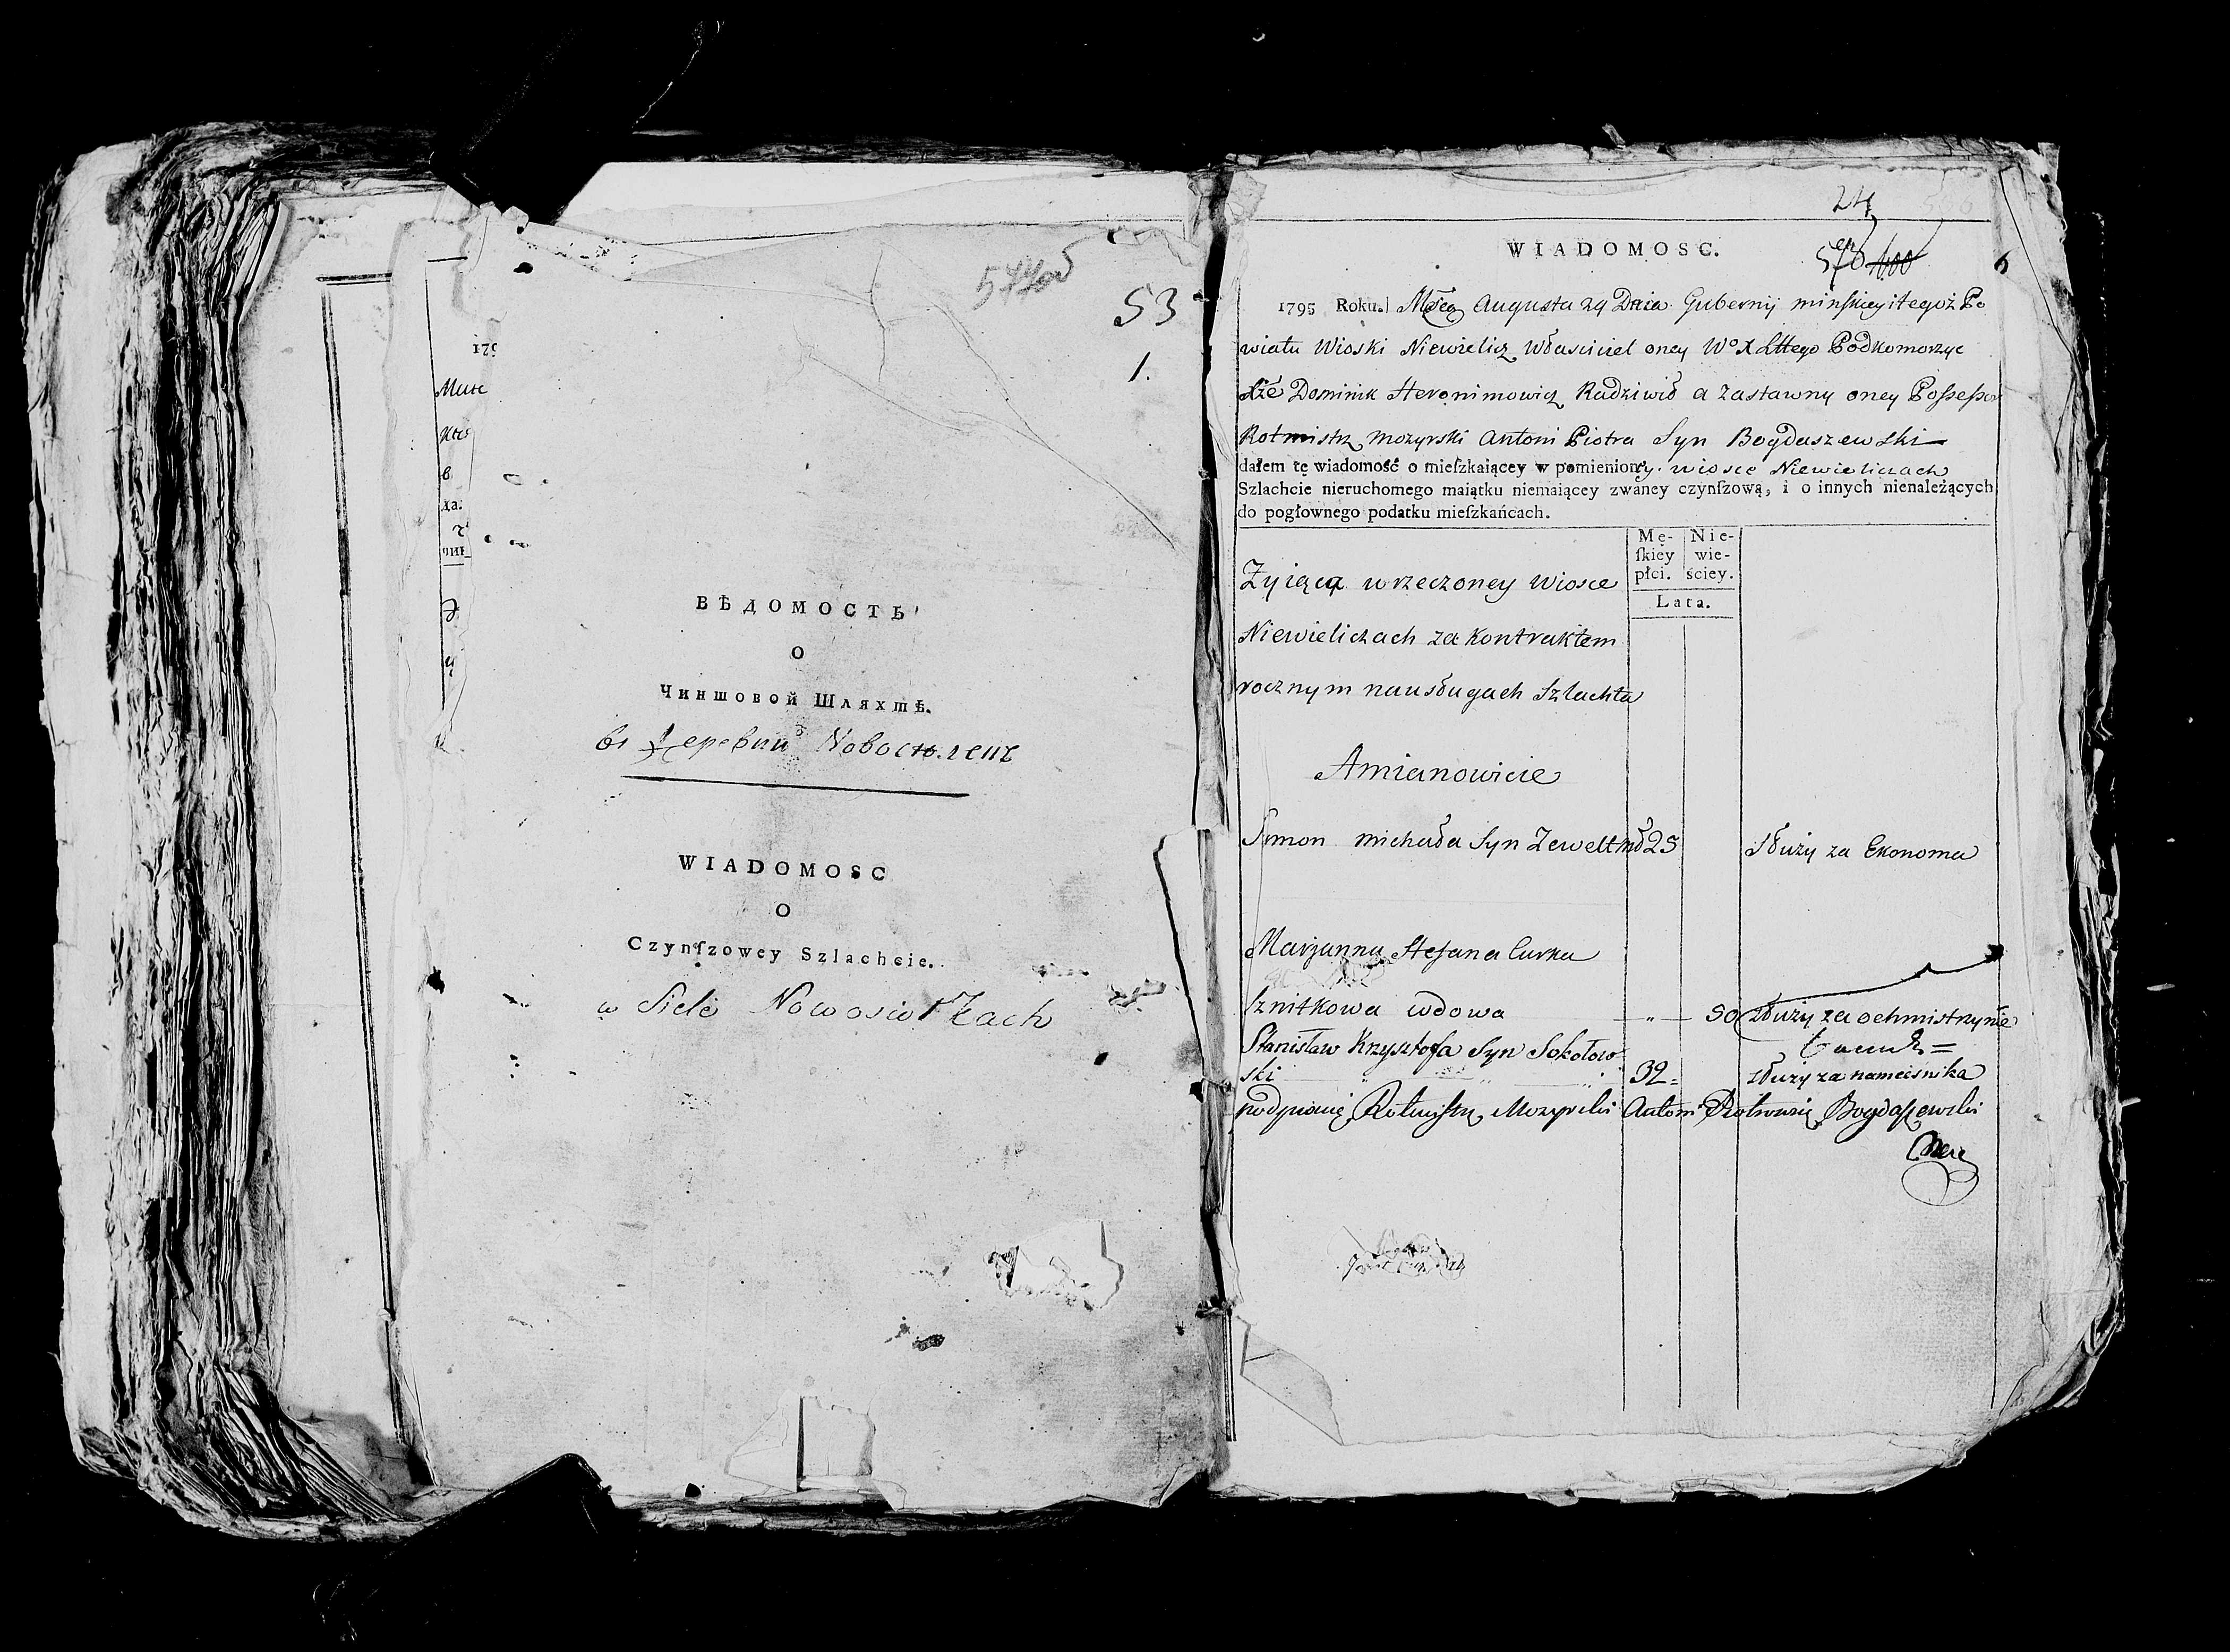 574об
53
1.
ВѢДОМОСТЬ
О
Чиншовой Шляхтѣ.
WIADOMOSC
O
Czynſzowey Szlachcie.
w Siele Nowosiołkach
24
WIADOMOSC.
1795 Roku. Augusta 29 Dnia Gubernij minſkiey itegoż Po
wiatu Wioski Niewielicz Właściciel oney Podkomorzyc
Dominik Heronimowicz Radziwił a Zastawny oney Poſseſsor
Rotmistrz mozyrski Antoni Piotra Syn Bogdaszewski
dałem tę wiadomość o mieſzkaiącey w pomienioney wiosce Niewieliczach
Szlachcie nieruchomego maiątku niemaiącey zwaney czynſzową, i o innych nienależących
do pogłownego podatku mieſzkańcach.
Mę- Nie-
ſkiey wie-
płci. ściey.
Lata.
Zyiąca wrzeczoney wiosce
Niewieliczach za kontraktem
rocznym nausługach Szlachta
Amianowicie
Symon michała Syn 25 Służy za Ekonoma
Marjanna Stefana Curka
Sznitkowa wdowa " 50 służy za ochmistrzynię
Stanisław Krzysztofa Syn Sokołow
ski 32 służy za namiesnika
Rotmistrz Mozyrski Antoni Bogdaszewski